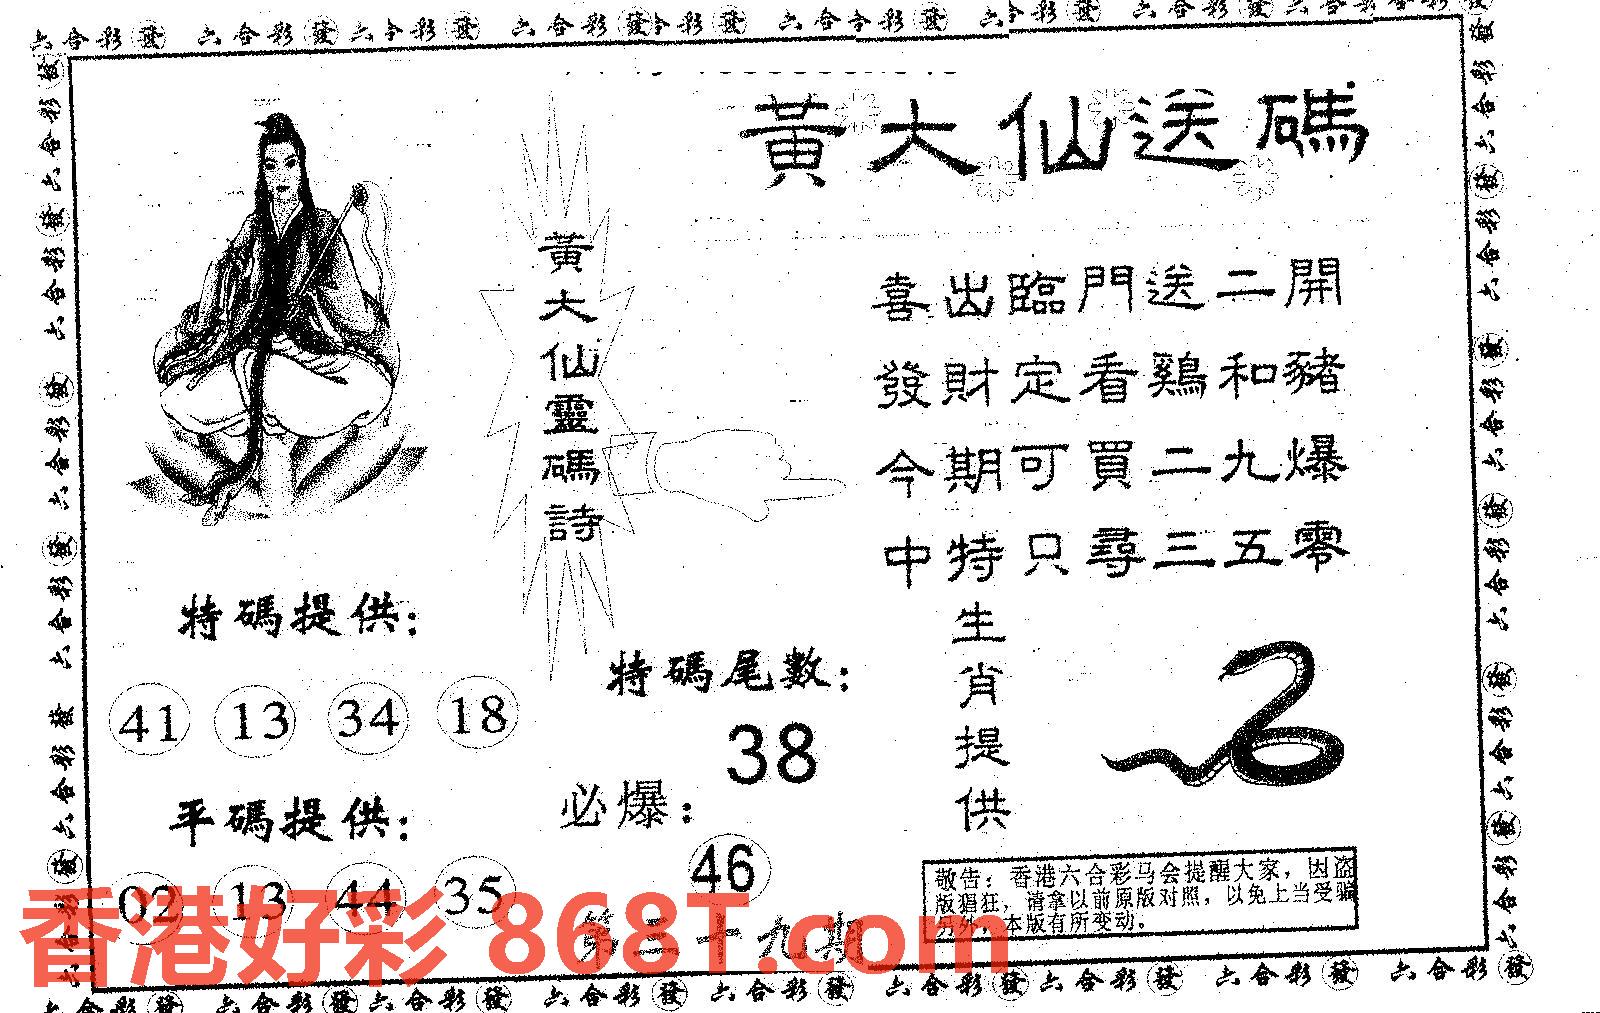 六合彩發 六合彩發 六合彩發 六合彩發 六合彩發 六合彩發 六合彩發
黃大仙送碼
黃大仙靈碼詩
喜出臨門送二開
發財定看鷄和豬
今期可買二九爆
中特只尋三五零
特碼提供：
41 13 34 18
平碼提供：
02 13 44 35
特碼尾數：
38
必爆：
46
生肖提供
敬告：香港六合彩马会提醒大家，因盗
版猖狂，请拿以前原版对照，以免上当受骗
另外，本版有所变动。
第二十九期
香港好彩 868T.com
六合彩發 六合彩發 六合彩發 六合彩發 六合彩發 六合彩發 六合彩發 六合彩發 六合彩發